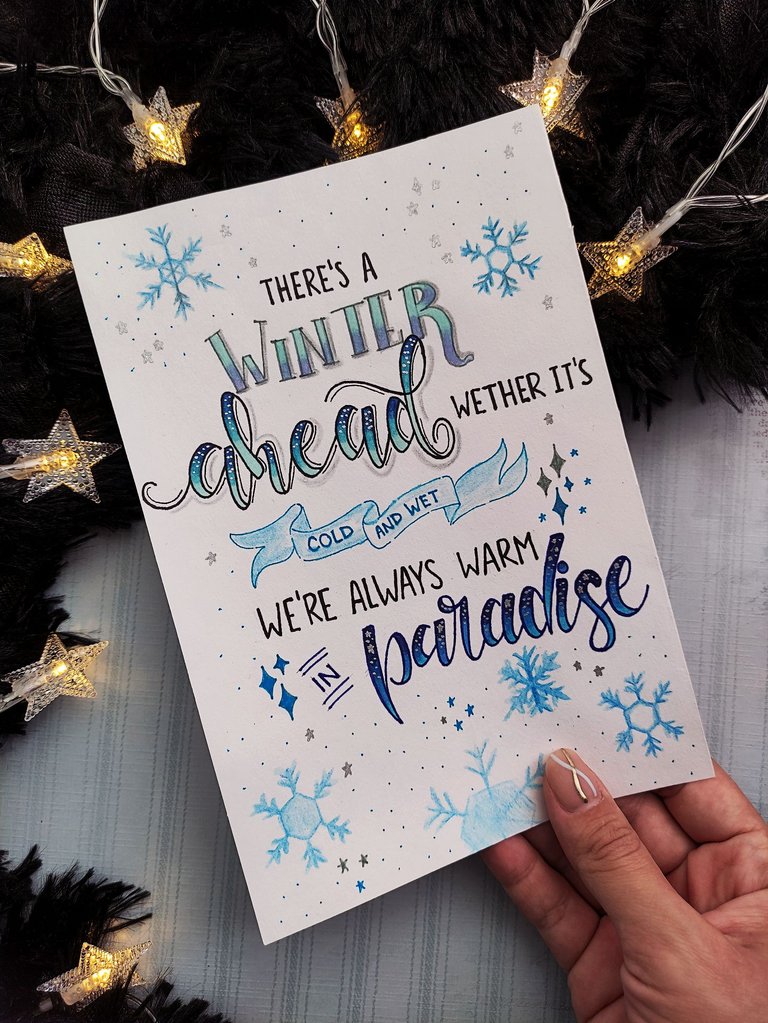 THERE'S A
WINTER
ahead WETHER IT'S
COLD AND WET
WE'RE ALWAYS WARM
IN paradise